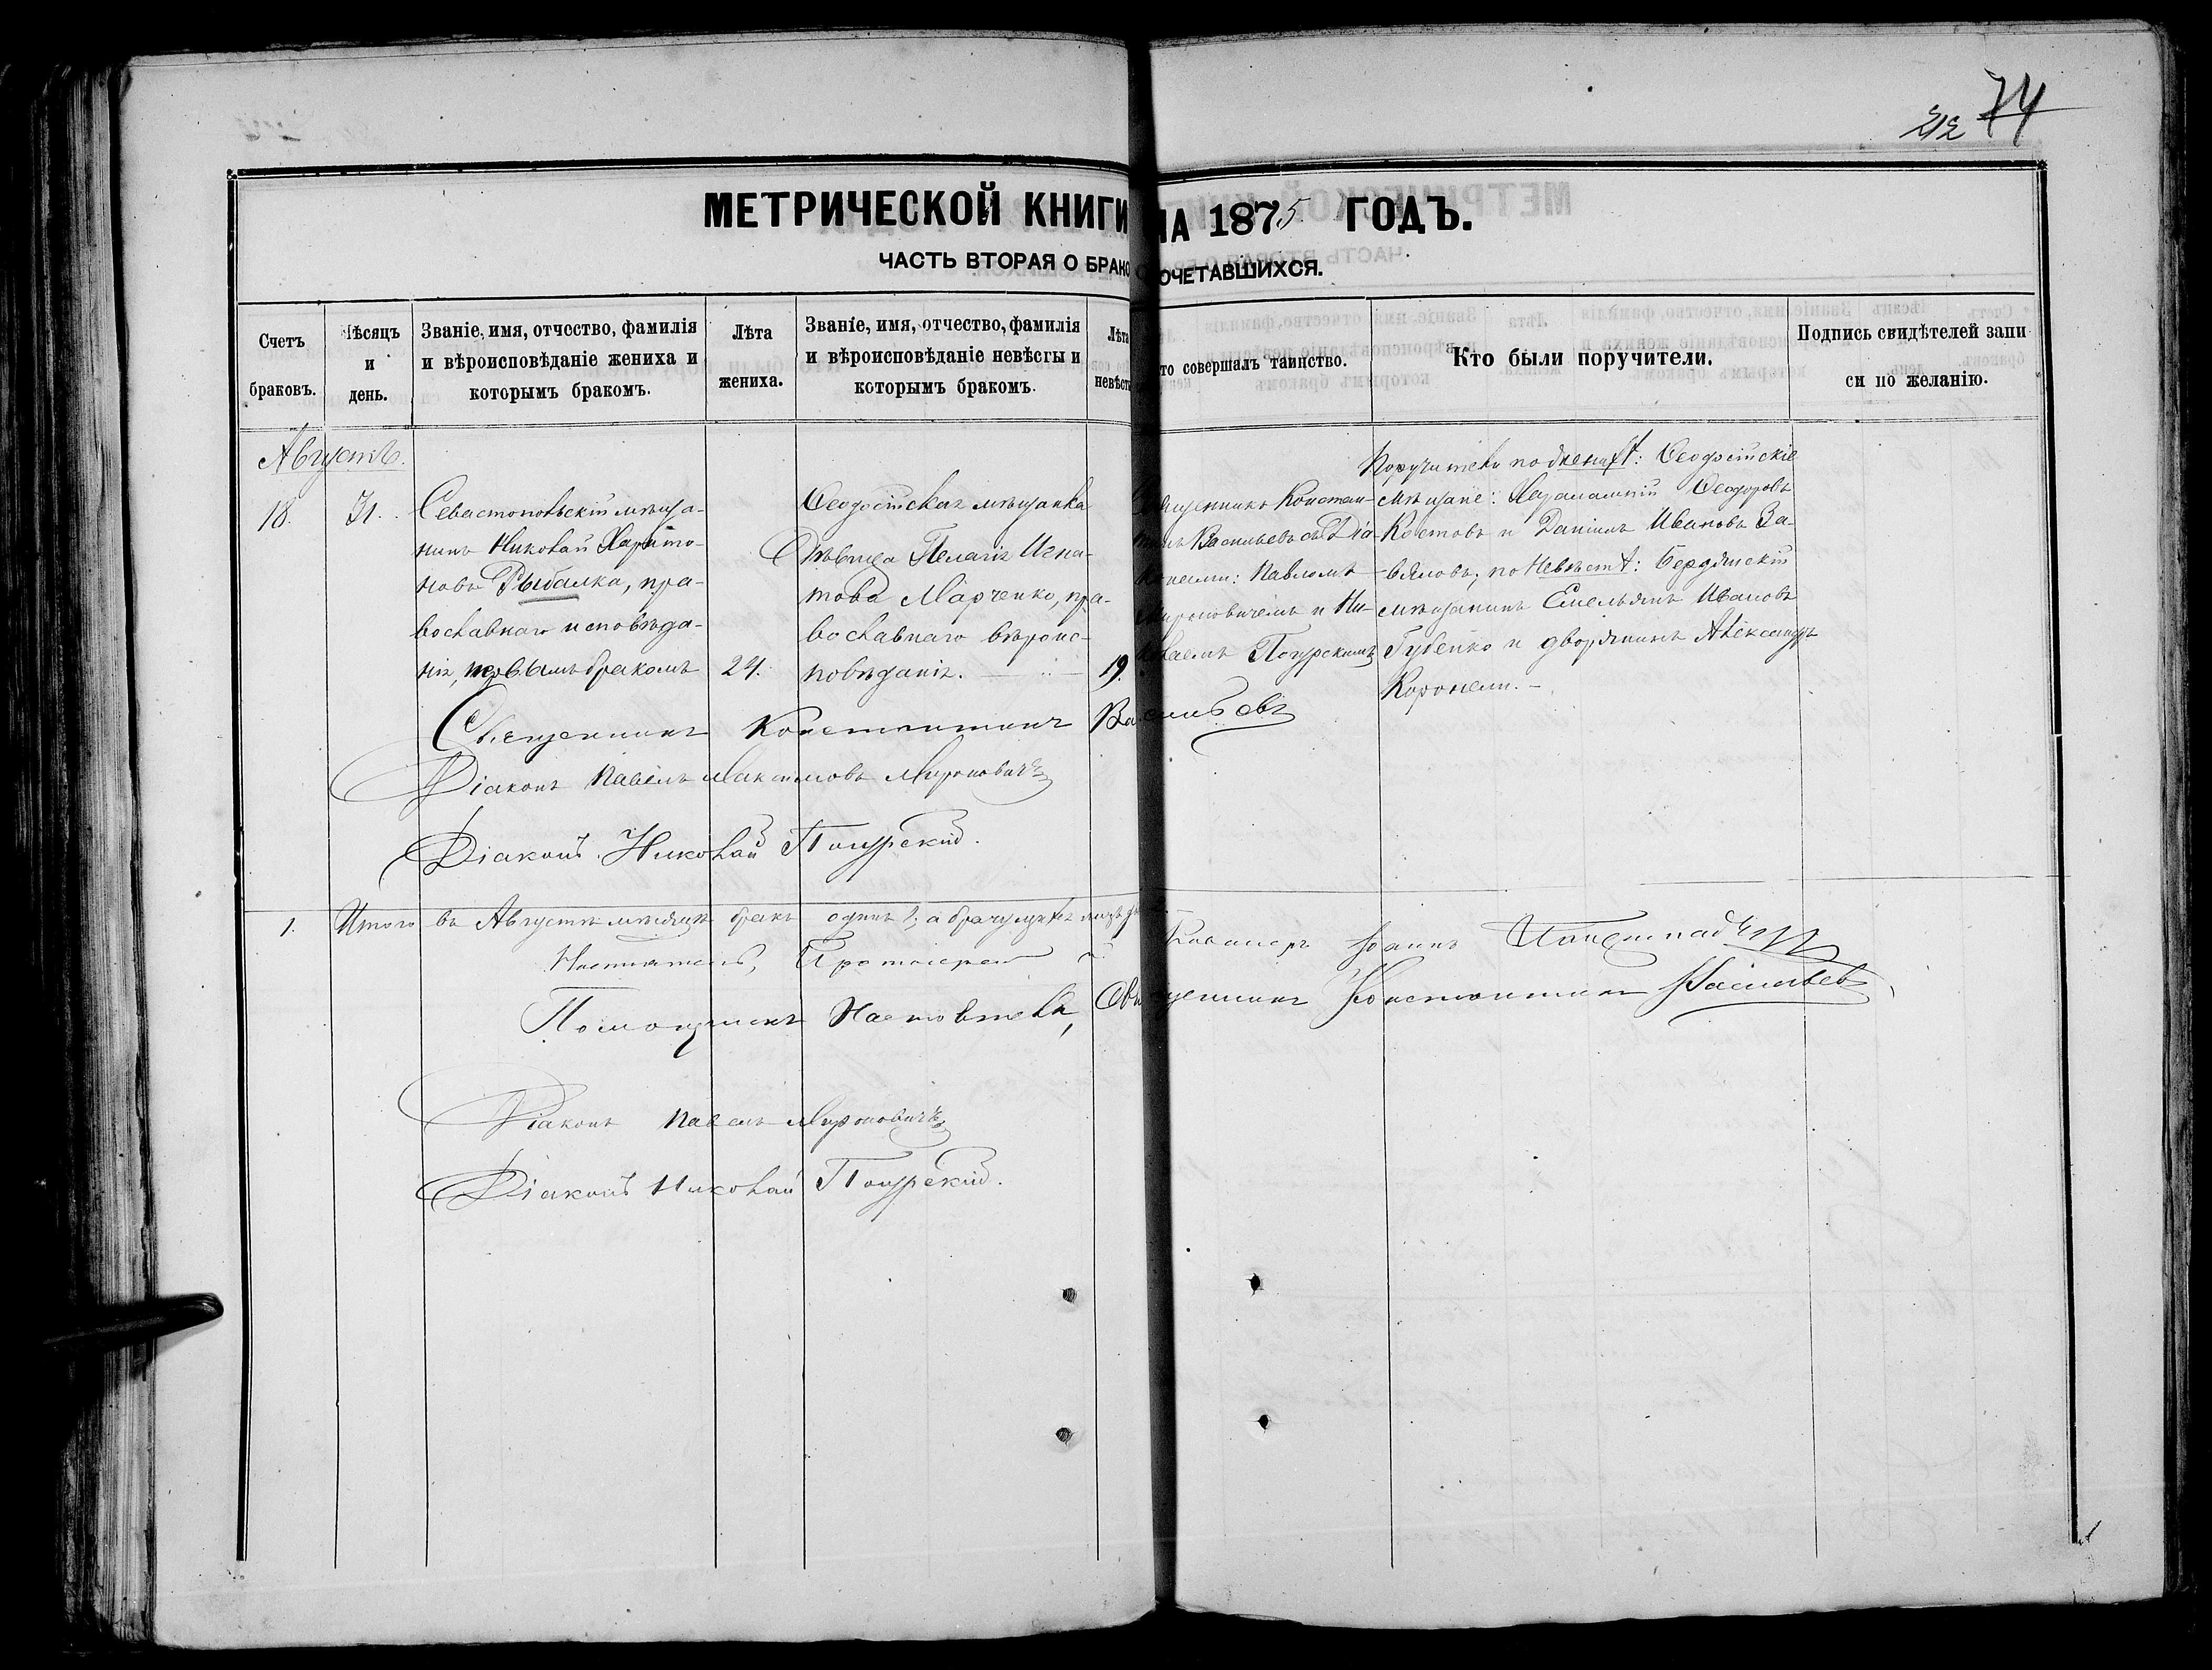 212 74
МЕТРИЧЕСКОЙ КНИГИ НА 1875 ГОДЪ.
ЧАСТЬ ВТОРАЯ О БРАКОСОЧЕТАВШИХСЯ.
Счетъ браковъ.
Мѣсяцъ и день.
Званіе, имя, отчество, фамилія
и вѣроисповѣданіе жениха и
которымъ бракомъ.
Лѣта
жениха.
Званіе, имя, отчество, фамилія
и вѣроисповѣданіе невѣсты и
которымъ бракомъ.
Лѣта
невѣсты
то совершалъ таинство.
Кто были поручители.
Подпись свидѣтелей запи
си по желанію.
Августъ.
18.
31.
Севастопольскій мѣща-
нинъ Николай Харито-
новъ Рыбалка, пра-
вославнаго исповѣда-
нія, первымъ бракомъ
24.
Ѳеодосійская мѣщанка
Дѣвица Пелагія Игна-
това Марченко, пра-
вославнаго вѣроис-
повѣданія.
19.
Священникъ Констан-
тинъ Васильевъ съ Діа-
конами: Павломъ
Мироновичемъ и Ни-
колаемъ Погурскимъ
Поручители по женихѣ: Ѳеодосійскіе
мѣщане: Харалампій Ѳеодоровъ
Костовъ и Даніилъ Ивановъ За-
вяловъ; по Невѣстѣ: Бердянскій
мѣщанинъ Емельянъ Ивановъ
Губенко и дворянинъ Александръ
Коронели.
Священникъ Константинъ Васильевъ
Діаконъ Павелъ Максимовъ Мироновичъ
Діаконъ Николай Погурскій.
1. Итого въ Августѣ мѣсяцѣ бракъ одинъ 1; а брачущихся лицъ
Настоятель, Протоіерей и Кавалеръ Іоаннъ
Помощникъ Настоятеля, Священникъ Константинъ Васильевъ
Діаконъ Павелъ Мироновичъ
Діаконъ Николай Погурскій.